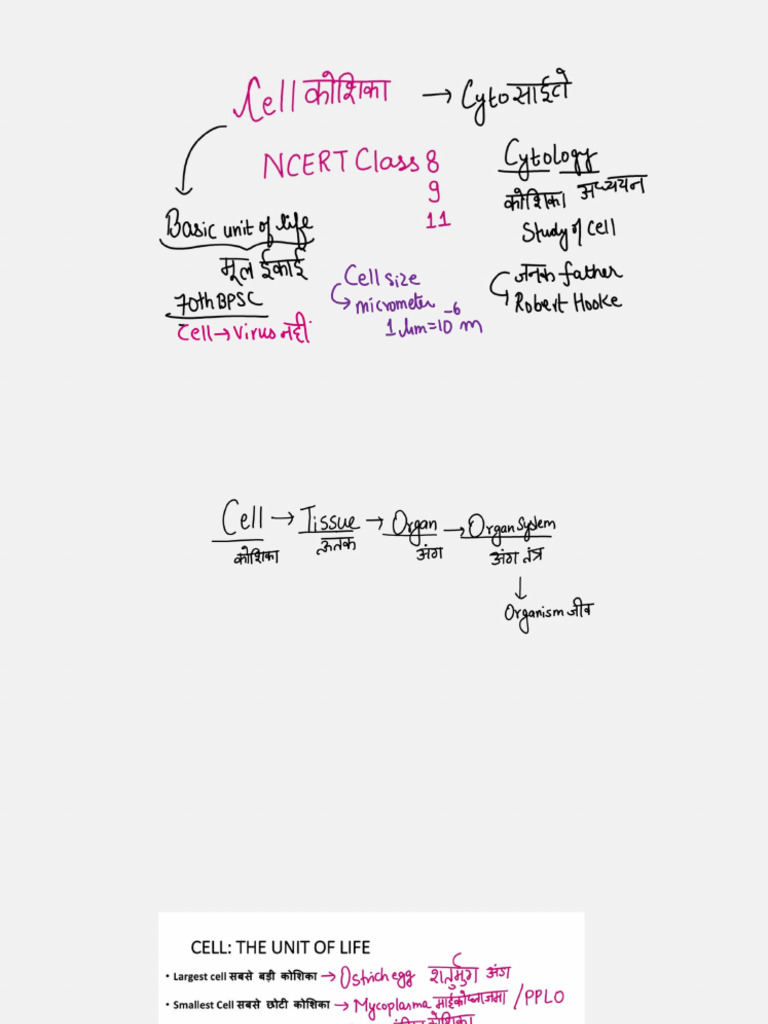 Cell कोशिका → Cyto साईटो
NCERT Class 8
9
11
Cytology
कोशिका अध्ययन
Study of Cell
जनक father
Robert Hooke
Basic unit of life
मूल ईकाई
70th BPSC
Cell → Virus नहीं
Cell size
micrometer
1 µm = 10⁻⁶ m
Cell → Tissue → Organ → Organ System
कोशिका ऊतक अंग अंग तंत्र
↓
Organism जीव
CELL: THE UNIT OF LIFE
• Largest cell सबसे बड़ी कोशिका → Ostrich egg शतुर्मुग अंग
• Smallest Cell सबसे छोटी कोशिका → Mycoplasma माईकोप्लाजमा / PPLO